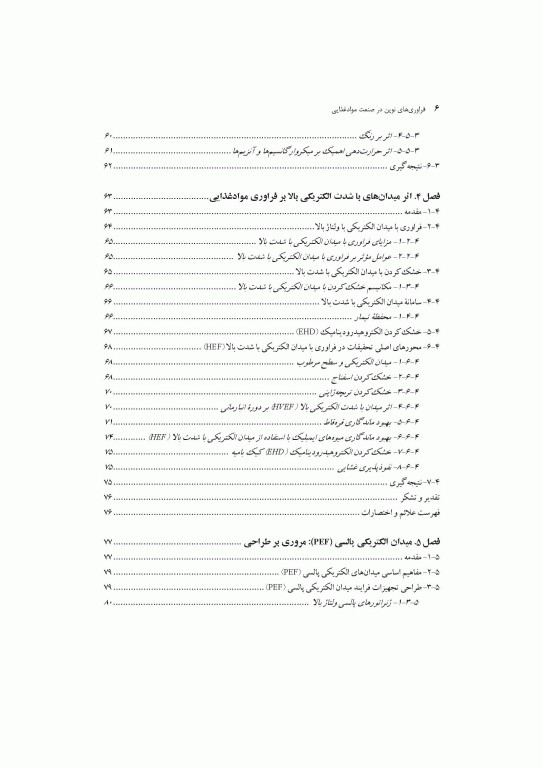 ۶ فراوری‌های نوین در صنعت موادغذایی
۳-۵-۴- اثر بر رنگ ........ ۶۰
۳-۵-۵- اثر حرارت‌دهی اهمیک بر میکروارگانیسم‌ها و آنزیم‌ها ........ ۶۱
۳-۶- نتیجه‌گیری ........ ۶۲
فصل ۴. اثر میدان‌های با شدت الکتریکی بالا بر فراوری موادغذایی ........ ۶۳
۴-۱- مقدمه ........ ۶۳
۴-۲- فراوری با میدان الکتریکی با ولتاژ بالا ........ ۶۴
۴-۲-۱- مزایای فراوری با میدان الکتریکی با شدت بالا ........ ۶۵
۴-۲-۲- عوامل مؤثر بر فراوری با میدان الکتریکی با شدت بالا ........ ۶۵
۴-۳- خشک‌کردن با میدان الکتریکی با شدت بالا ........ ۶۵
۴-۳-۱- مکانیسم خشک‌کردن با میدان الکتریکی با شدت بالا ........ ۶۶
۴-۴- سامانهٔ میدان الکتریکی با شدت بالا ........ ۶۶
۴-۴-۱- محفظهٔ تیمار ........ ۶۶
۴-۵- خشک‌کردن الکتروهیدرودینامیک (EHD) ........ ۶۷
۴-۶- محورهای اصلی تحقیقات در فراوری با میدان الکتریکی با شدت بالا (HEF) ........ ۶۸
۴-۶-۱- میدان الکتریکی و سطح مرطوب ........ ۶۸
۴-۶-۲- خشک‌کردن اسفناج ........ ۶۸
۴-۶-۳- خشک‌کردن تربچه‌ژاپنی ........ ۷۰
۴-۶-۴- اثر میدان با شدت الکتریکی بالا (HVEF) بر دورهٔ انبارمانی ........ ۷۰
۴-۶-۵- بهبود ماندگاری قره‌قاط ........ ۷۱
۴-۶-۶- بهبود ماندگاری میوه‌های ایمبلیک با استفاده از میدان الکتریکی با شدت بالا (HEF) ........ ۷۴
۴-۶-۷- خشک‌کردن الکتروهیدرودینامیک (EHD) کیک بامیه ........ ۷۵
۴-۶-۸- نفوذپذیری غشایی ........ ۷۵
۴-۷- نتیجه‌گیری ........ ۷۵
تقدیر و تشکر ........ ۷۶
فهرست علائم و اختصارات ........ ۷۶
فصل ۵. میدان الکتریکی پالسی (PEF): مروری بر طراحی ........ ۷۷
۵-۱- مقدمه ........ ۷۷
۵-۲- مفاهیم اساسی میدان‌های الکتریکی پالسی (PEF) ........ ۷۹
۵-۳- طراحی تجهیزات فرایند میدان الکتریکی پالسی (PEF) ........ ۷۹
۵-۳-۱- ژنراتورهای پالسی ولتاژ بالا ........ ۸۰